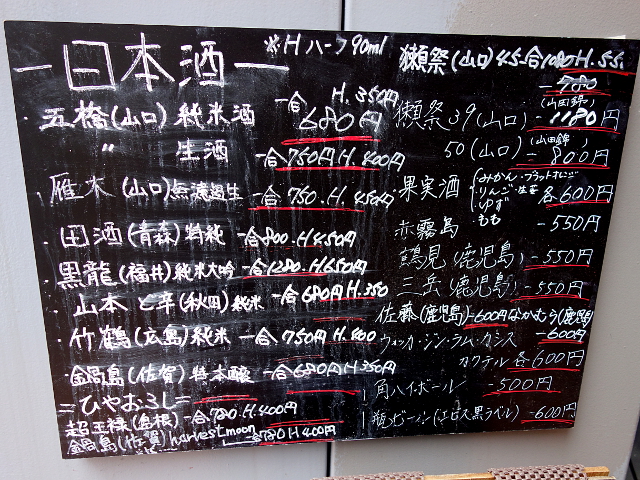 ー日本酒ー
※H ハーフ90ml
・五橋(山口)純米酒 一合680円 H.350円
〃 生酒 一合750円H.400円
・雁木(山口)無濾過生 一合750.H.450円
・田酒(青森)特純 一合800.H450円
・黒龍(福井)純米大吟 一合1280.H.650円
・山本 ど辛(秋田)純米 一合680円H.350
・竹鶴(広島)純米 一合750円H.400
・金鍋島(佐賀)特本醸 一合680円H.350円
=ひやおろし=
超王禄(島根)一合780.H.400円
鍋島(佐賀)harvest moon 一合780H400円
獺祭(山口)45一合1080H.55
980
獺祭39(山口) (山田錦) 1180円
50(山口) (山田錦) 800円
果実酒 みかん・ブラッドオレンジ
りんご・生姜
ゆず
もも
各600円
赤霧島 -550円
鶴見(鹿児島) -550円
三岳(鹿児島) -550円
佐藤(鹿児島)-600円 なかむら(鹿児島)
-600円
ウォッカ・ジン・ラム・カシス
カクテル各600円
角ハイボール -500円
瓶ビール(エビス黒ラベル) -600円